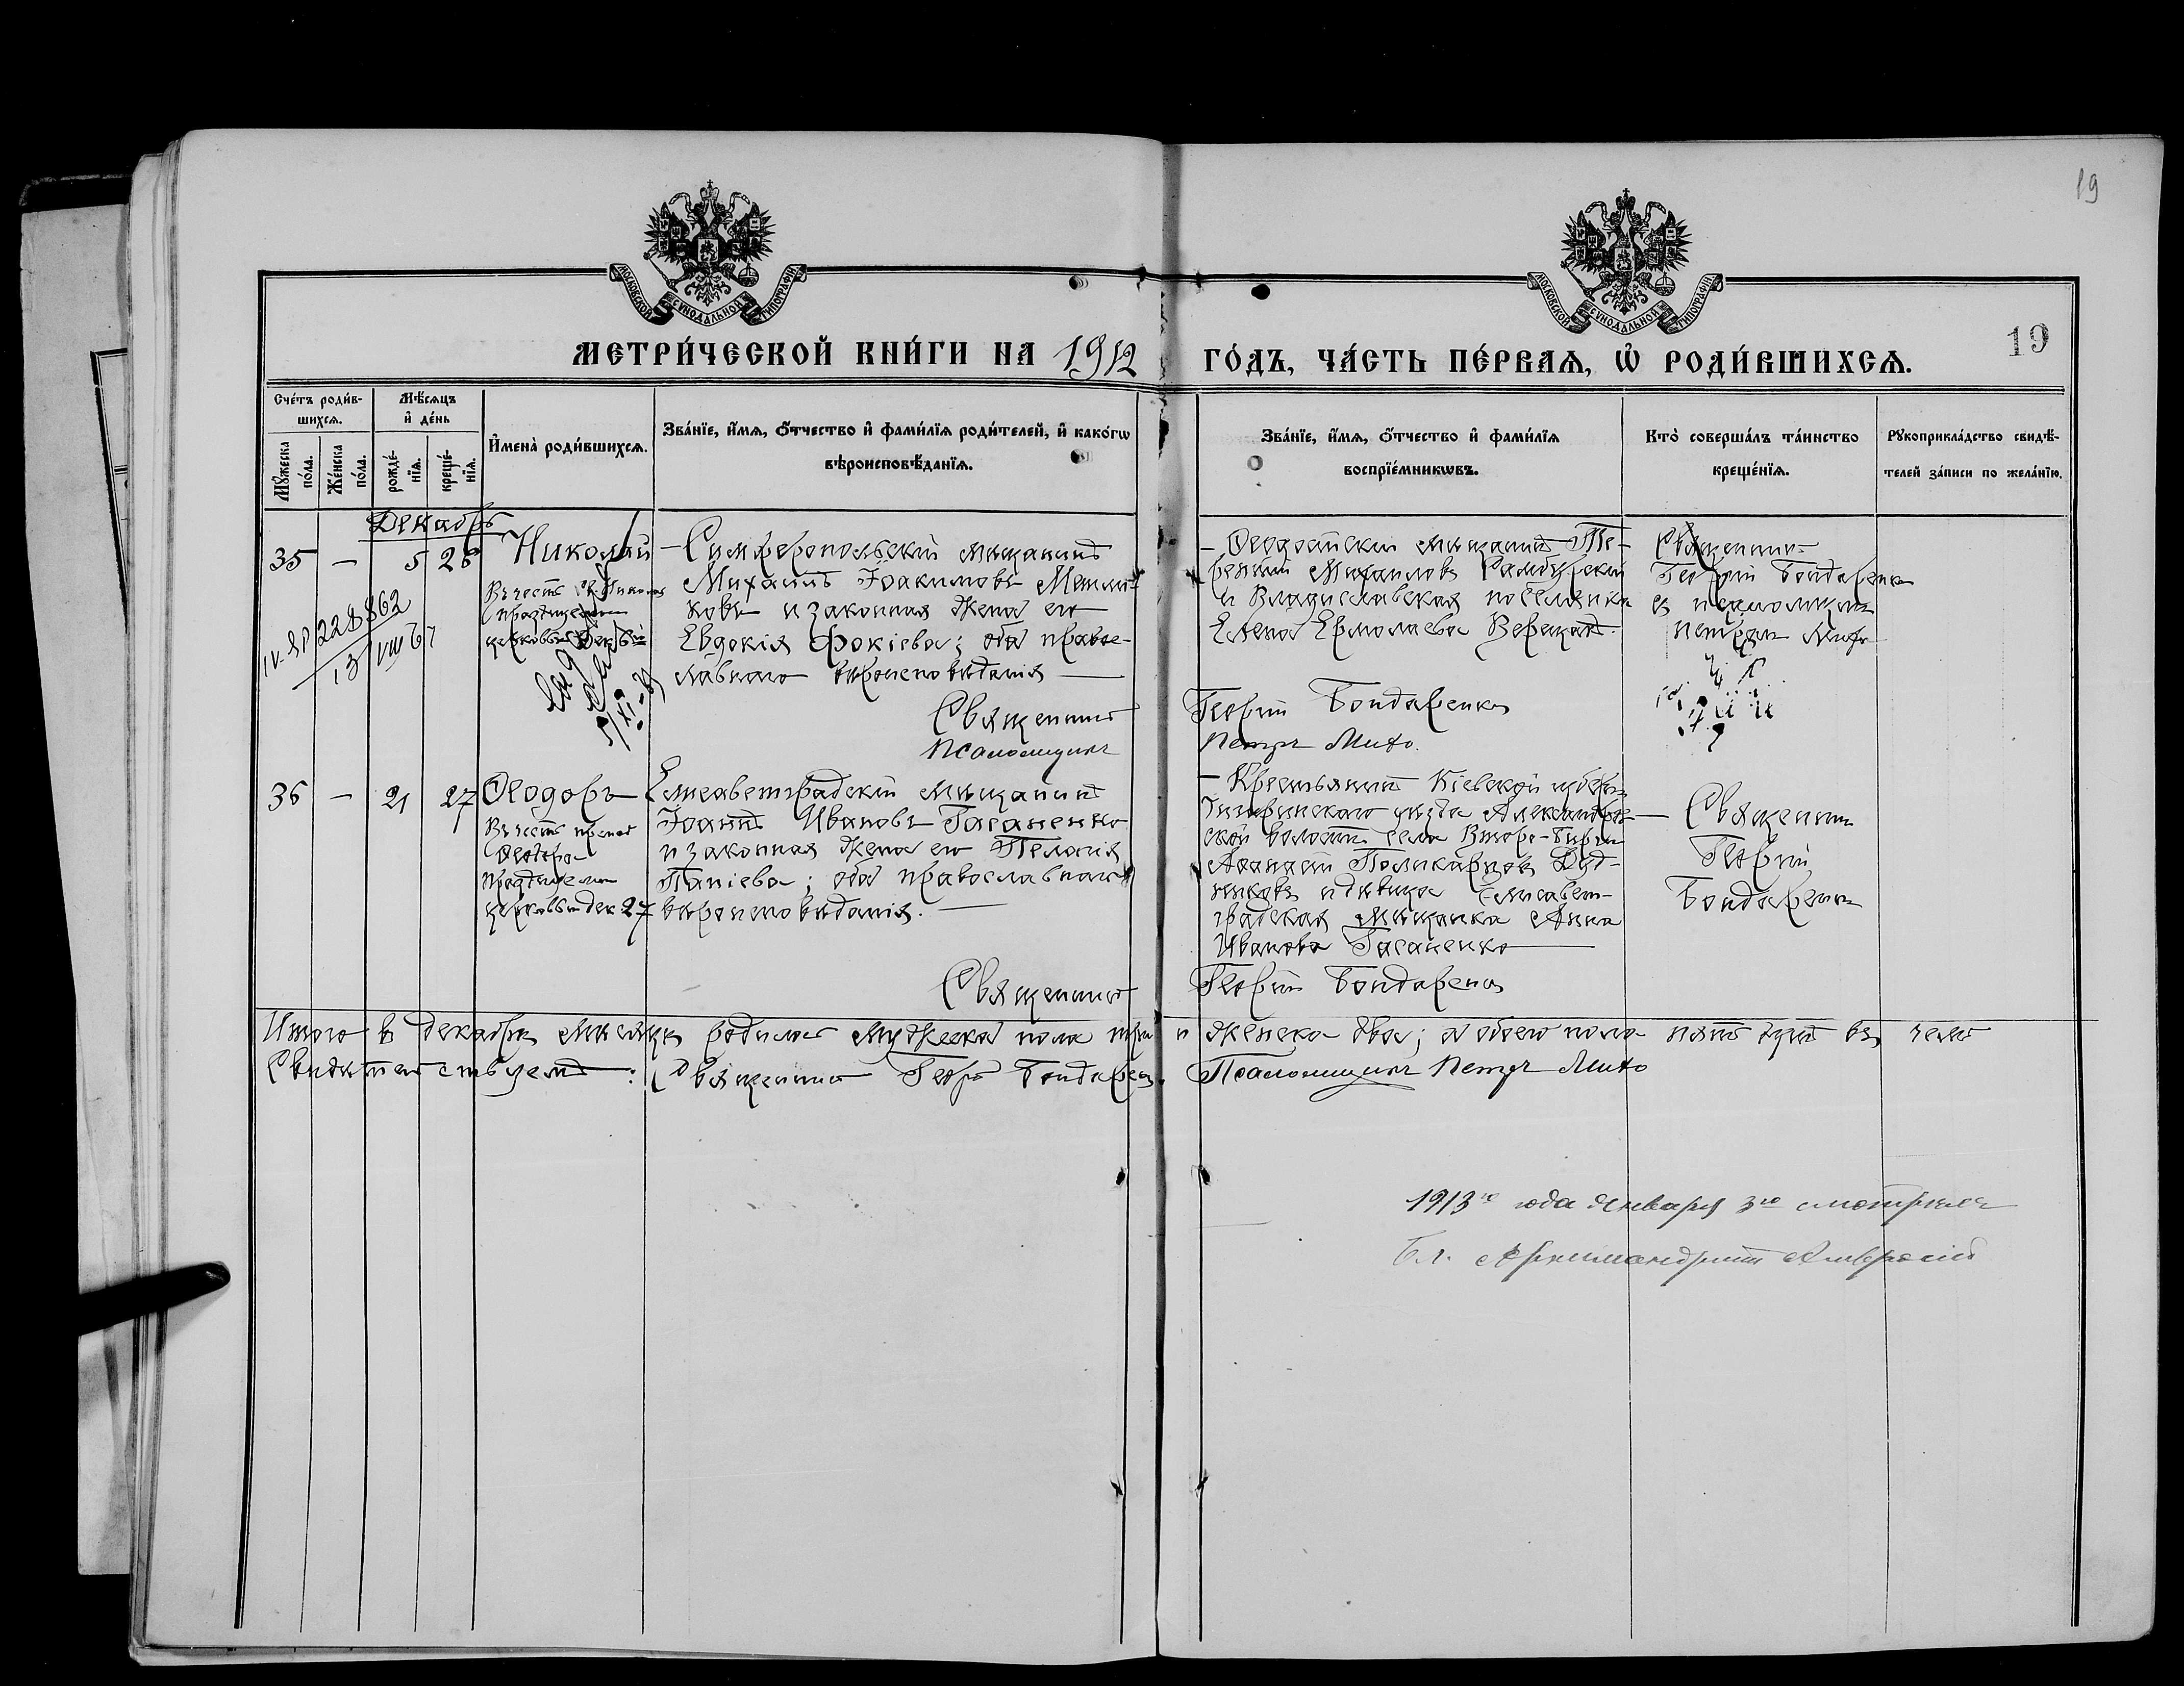 19
МОСКОВСКОЙ СѴНОДАЛЬНОЙ ТИПОГРАФІИ.
МОСКОВСКОЙ СѴНОДАЛЬНОЙ ТИПОГРАФІИ.
19
МЕТРИ́ЧЕСКОЙ КНИ́ГИ НА 1912 ГО́ДЪ, ЧА́СТЬ ПЕ́РВАѦ, Ѡ҆ РОДИ́ВШИХСѦ.
Сче́тъ роди́в-
шихсѧ.
Мꙋ́жеска по́ла.
Же́нска по́ла.
Мѣ́сѧцъ
и҆ де́нь
рожде́-нїѧ.
креще́-нїѧ.
И҆мена̀ роди́вшихсѧ.
Зва́нїе, и҆́мѧ, ѻ҆́тчество и҆ фами́лїѧ роди́телей, и҆ како́гѡ
вѣроисповѣ́данїѧ.
Зва́нїе, и҆́мѧ, ѻ҆́тчество и҆ фами́лїѧ
воспрїе́мникѡвъ.
Кто̀ соверша́лъ та́инство
креще́нїѧ.
Рꙋкоприкла́дство свидѣ́-
телей за́писи по жела́нїю.
Декабрь
35 — 5 26 Николай
Въ честь св. Николая
празднуемаго
церковью Дек. 6
228862
13
Симферопольскій мѣщанинъ
Михаилъ Іоакимовъ
ковъ и законная жена его
Евдокія Фокіева; оба право-
славнаго вѣроисповѣданія —
Священникъ
Псаломщикъ
— Ѳеодосійскій мѣщанинъ
Михаиловъ
и Владиславская поселянка
Елена Ермолаева
Георгій Бондаренко
Петръ Мито.
Священникъ
Георгій Бондаренко
съ псаломщикомъ
Петромъ Мито
36 — 21 27 Ѳеодоръ
Въ честь препод.
Ѳеодора
празднуемаго
церковью дек 27
Елисаветградскій мѣщанинъ
Іоаннъ Ивановъ Гасаненко
и законная жена его Пелагія
Папіева; оба православнаго
вѣроисповѣданія. —
Священникъ
— Крестьянинъ Кіевской губерн.
Чигиринскаго уѣзда Александров-
ской волости села
Аѳанасій Поликарповъ Дуд-
никовъ и дѣвица Елисавет-
градская мѣщанка Анна
Иванова Гасаненко —
Георгій Бондаренко
— Священникъ
Георгій
Бондаренко
Итого в декабрѣ мѣсяцѣ родилось мужеска пола три и женска два; а обоего пола пять душъ въ
Свидѣтельствуемъ: Священникъ Георгій Бондаренко. Псаломщикъ Петръ Мито
1913го года января 3го смотрѣлъ
Бл. Архимандритъ Амвросій